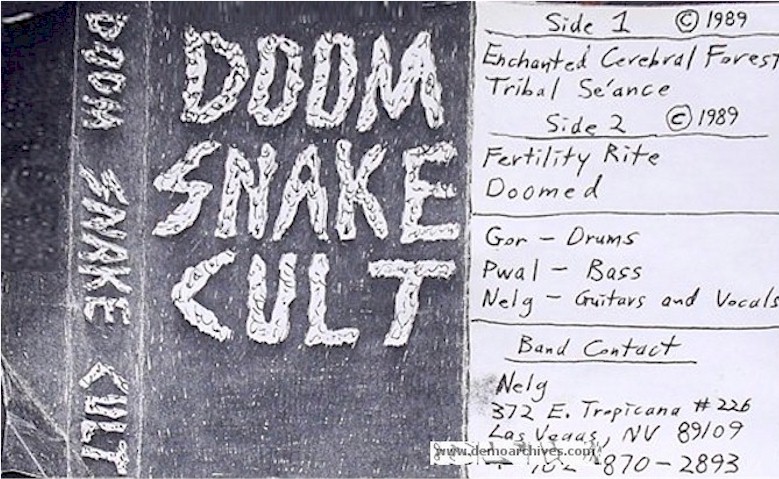 DOOM SNAKE CULT
DOOM
SNAKE
CULT
Side 1 © 1989
Enchanted Cerebral Forest
Tribal Sé'ance
Side 2 © 1989
Fertility Rite
Doomed
Gor - Drums
Pwal - Bass
Nelg - Guitars and Vocals
Band Contact
Nelg
372 E. Tropicana #226
Las Vegas, NV 89109
870-2893
www.demoarchives.com